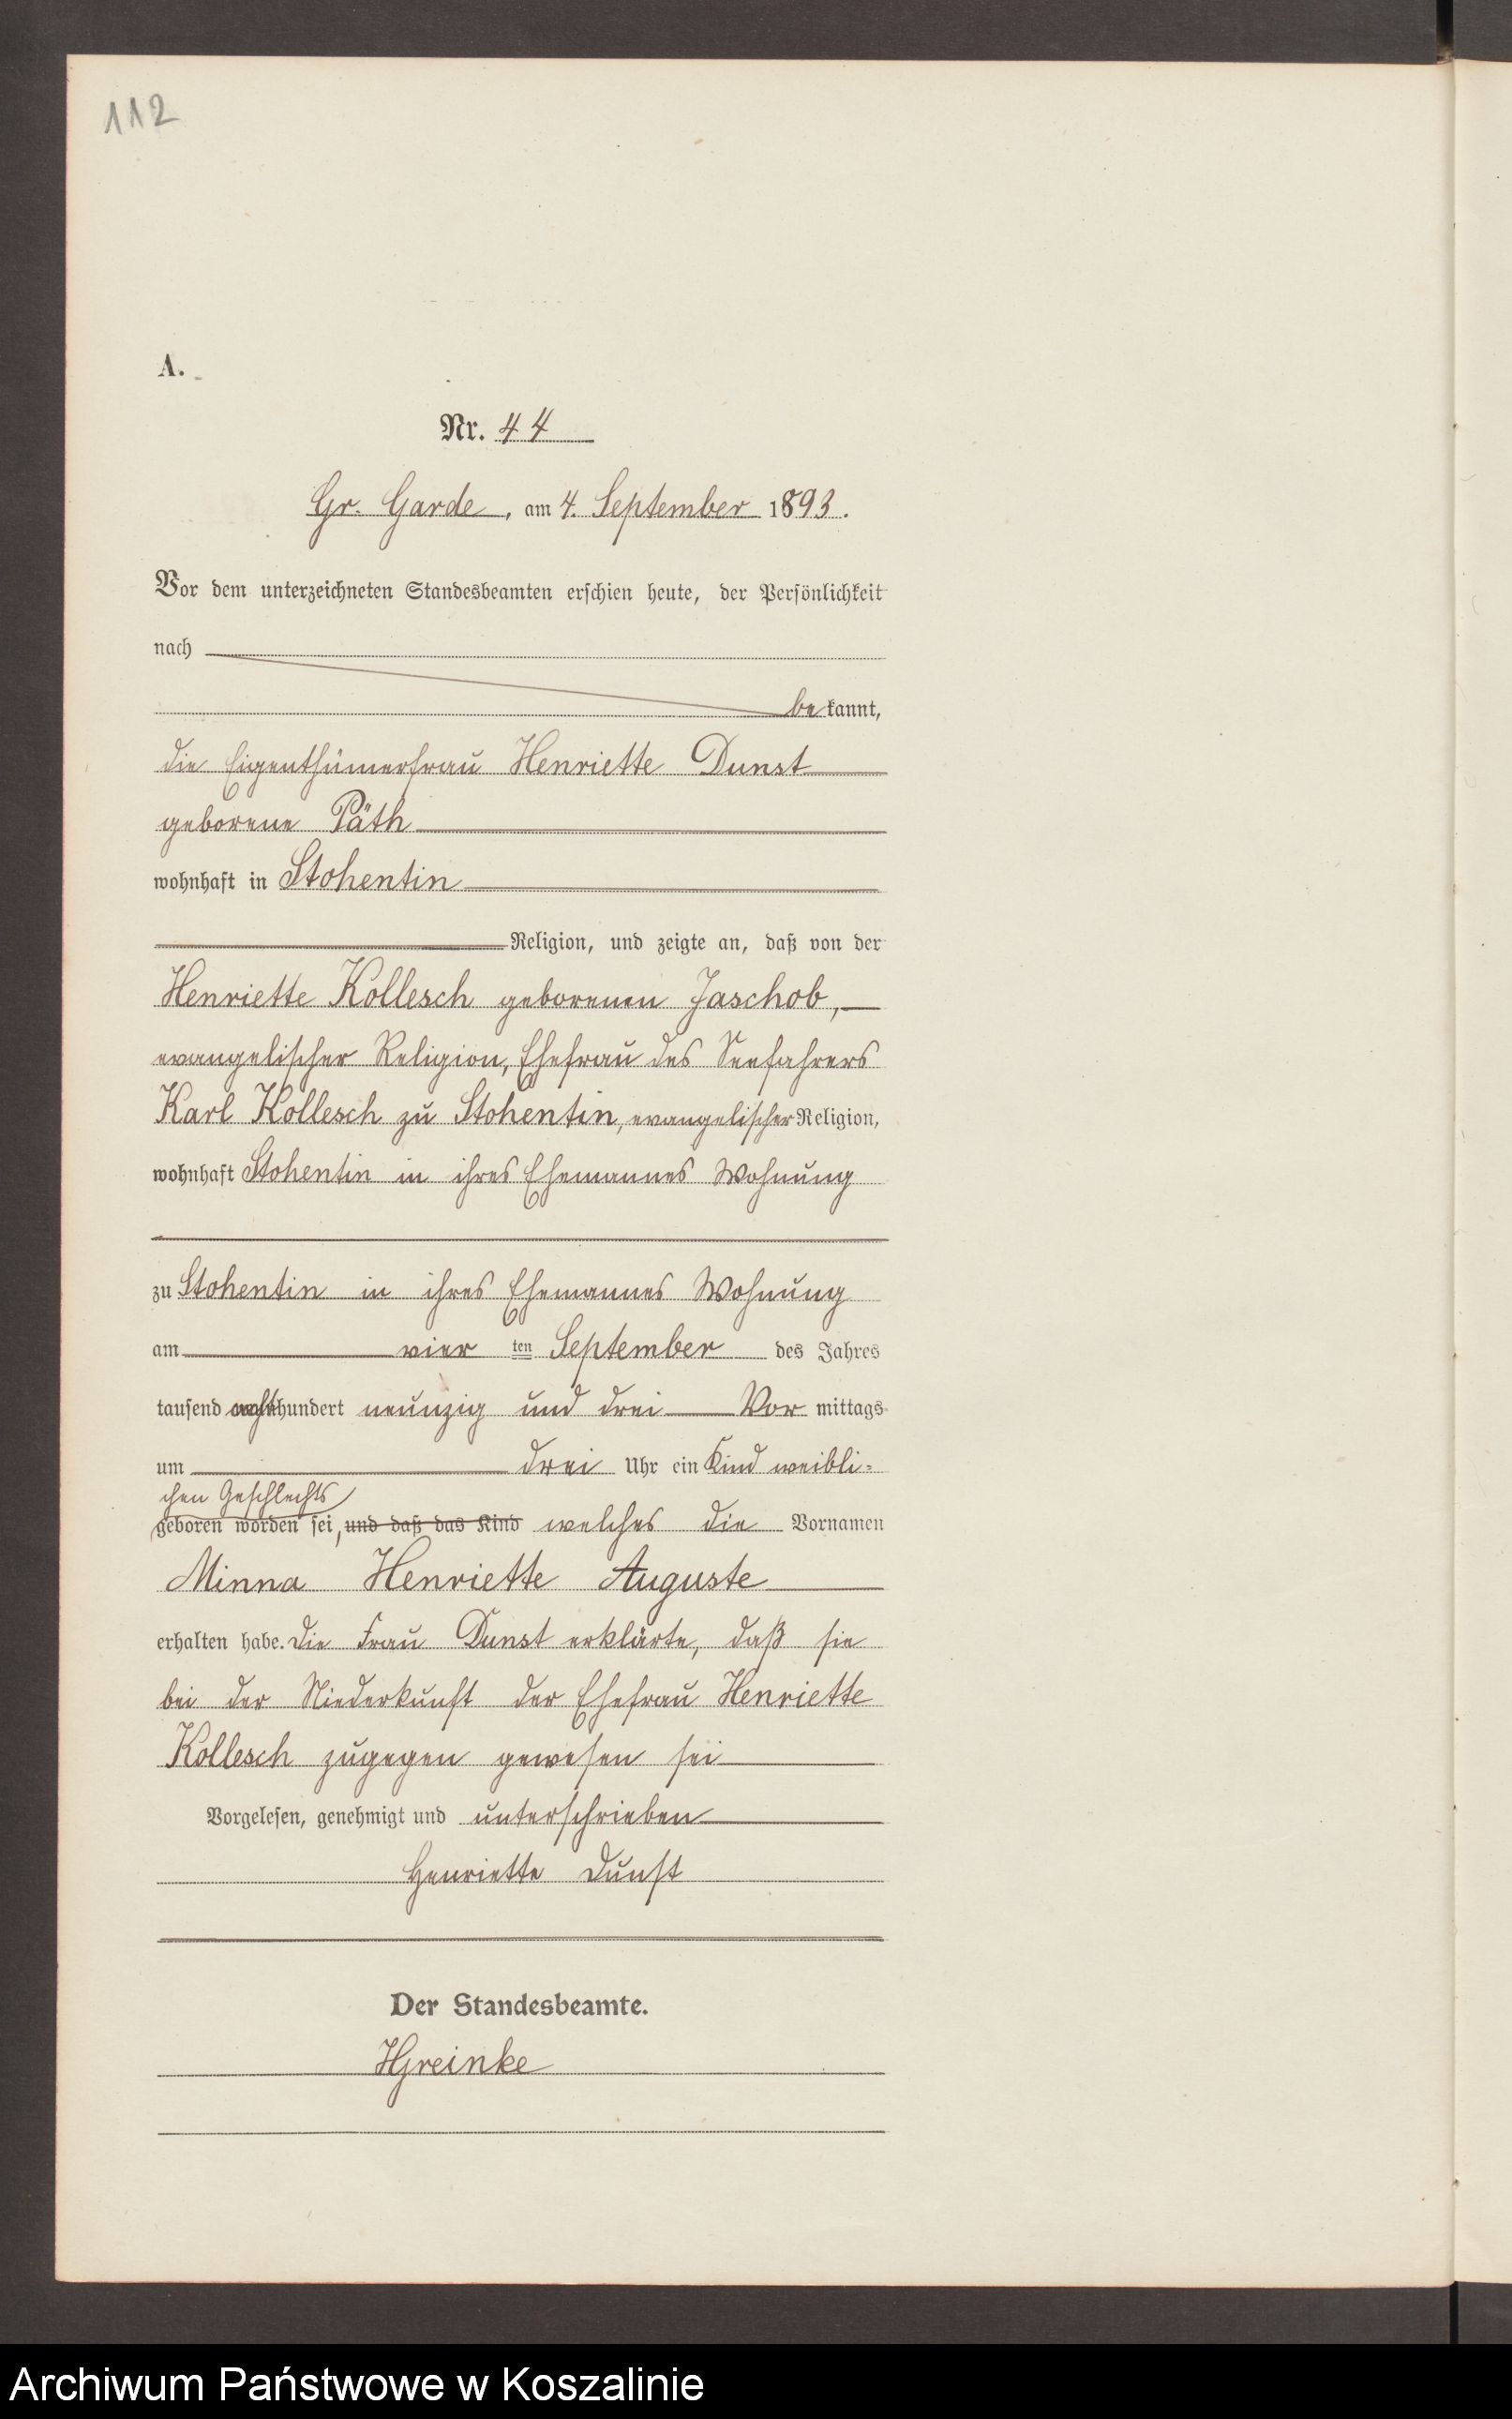 112
A.
Nr. 44
Gr. Garde, am 4. September 1893.
Vor dem unterzeichneten Standesbeamten erschien heute, der Persönlichkeit
nach
bekannt,
die Eigenthümerfrau Henriette Dunst
geborene Päth
wohnhaft in Stohentin
Religion, und zeigte an, daß von der
Henriette Kollesch geborenen Jaschob,
evangelischer Religion, Ehefrau des Seefahrers
Karl Kollesch zu Stohentin, evangelischer Religion,
wohnhaft Stohentin in ihres Ehemannes Wohnung
zu Stohentin in ihres Ehemannes Wohnung
am vier ten September des Jahres
tausend acht hundert neunzig und drei Vor mittags
um drei Uhr ein Kind weibli-
chen Geschlechts
geboren worden sei, und daß das Kind welches die Vornamen
Minna Henriette Auguste
erhalten habe. Die Frau Dunst erklärte, daß sie
bei der Niederkunft der Ehefrau Henriette
Kollesch zugegen gewesen sei
Vorgelesen, genehmigt und unterschrieben
Henriette Dunst
Der Standesbeamte.
HGreinke
Archiwum Państwowe w Koszalinie